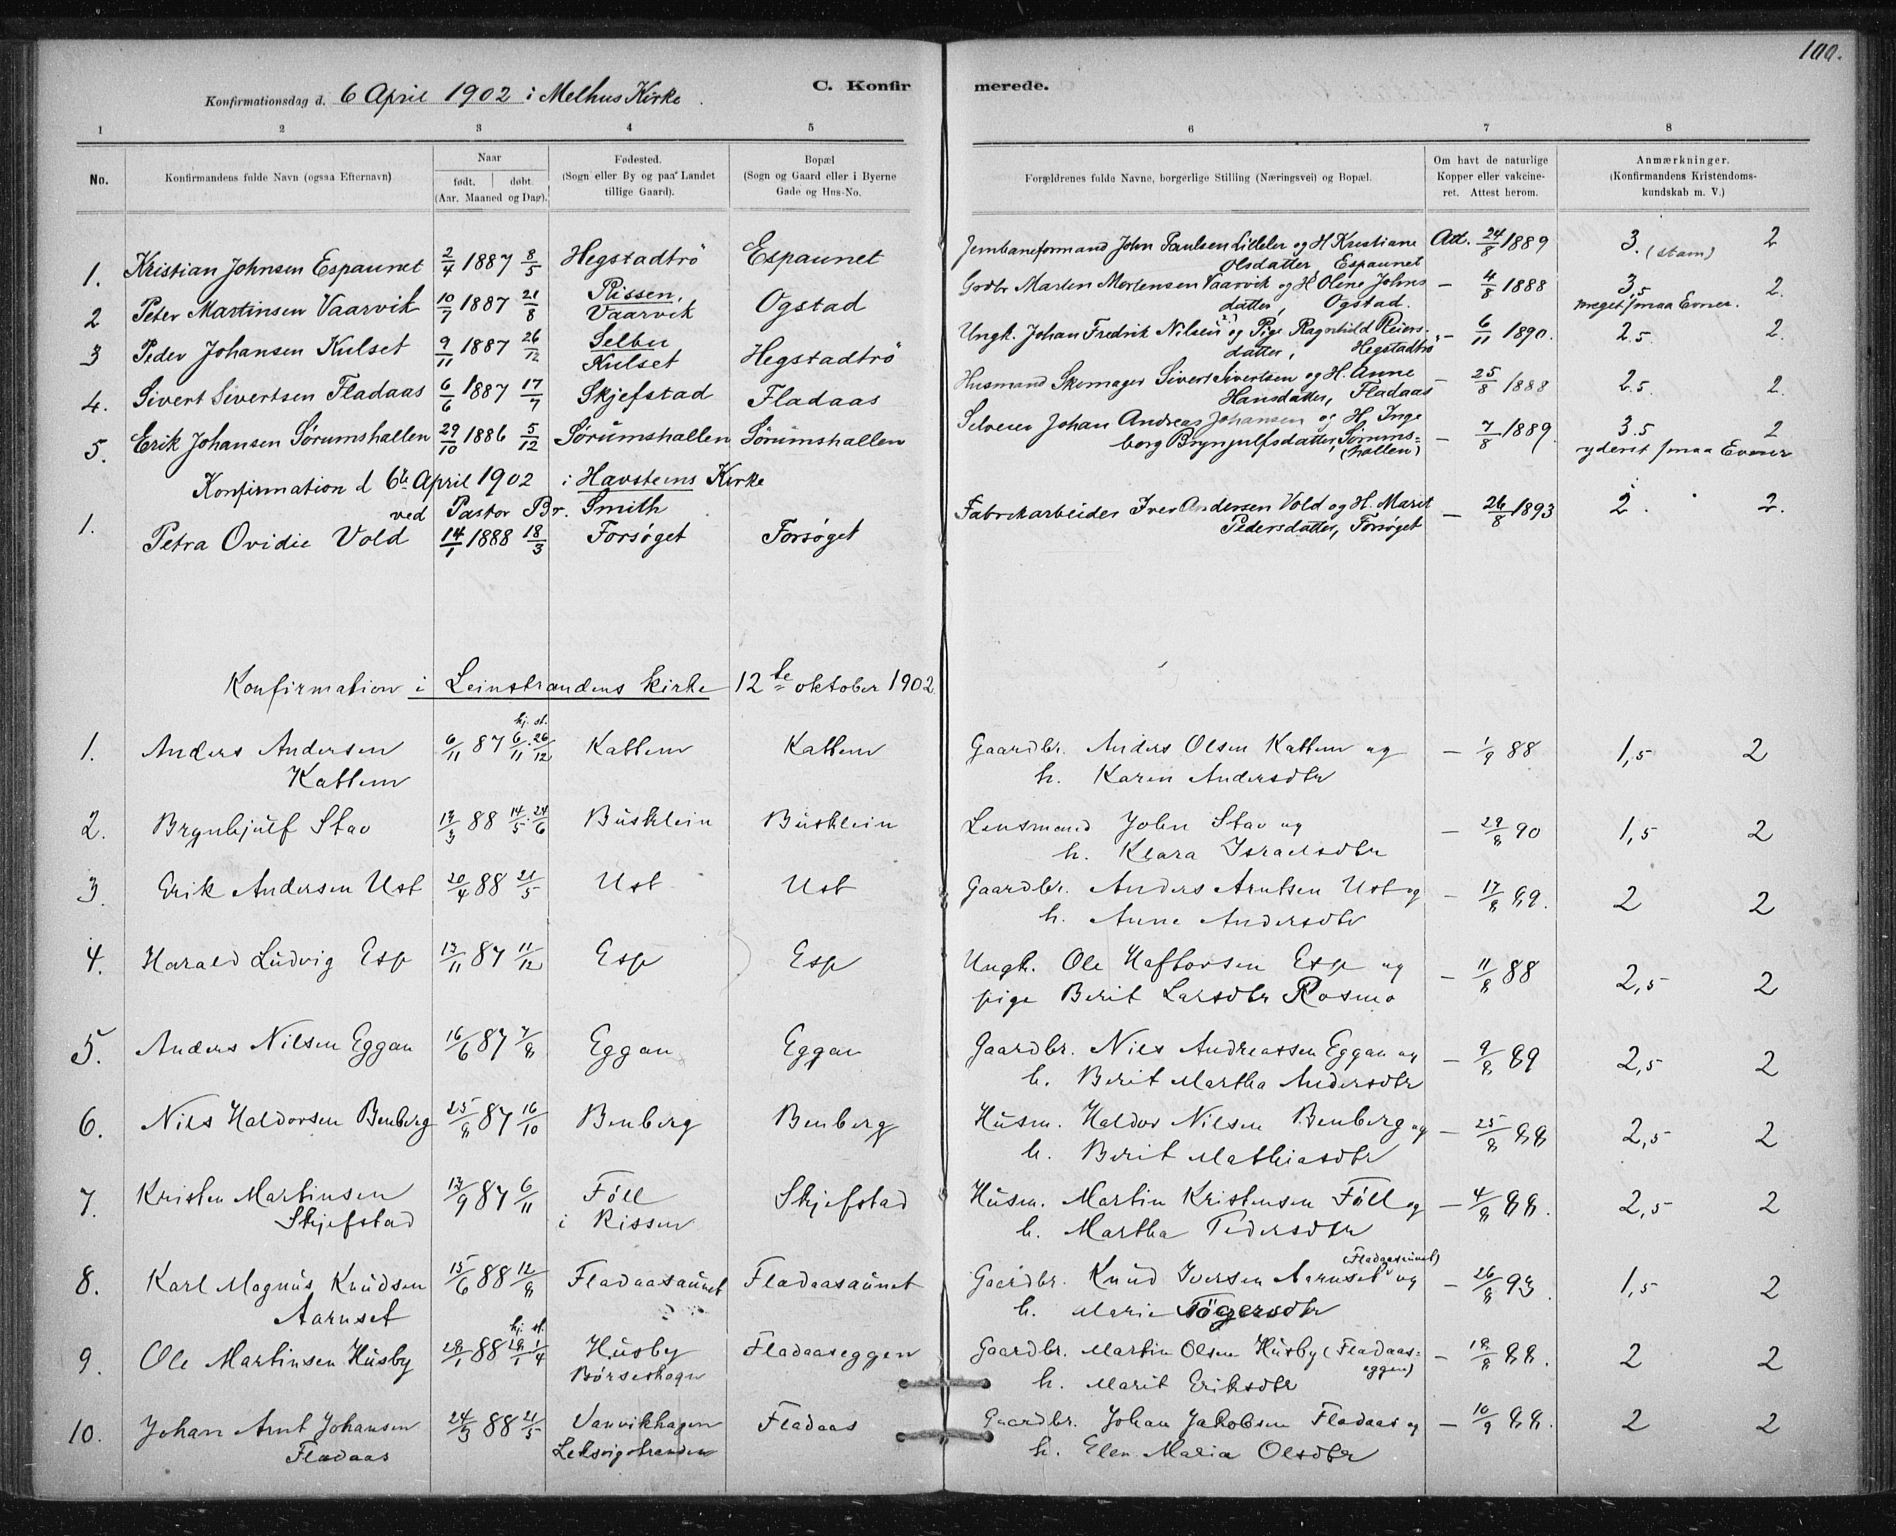 100.
Konfirmationsdag d. 6 April 1902 i Melhus Kirke. C. Konfirmerede.
1 2 3 4 5 6 7 8
No. Konfirmandens fulde Navn (ogsaa Efternavn) Naar født. døbt. (Aar, Maaned og Dag). Fødested. (Sogn eller By og paa Landet tillige Gaard). Bopæl (Sogn og Gaard eller i Byerne Gade og Hus-No. Forældrenes fulde Navne, borgerlige Stilling (Næringsvei) og Bopæl. Om havt de naturlige Kopper eller vakcineret. Attest herom. Anmærkninger. (Konfirmandens Kristendomskundskab m. V.)
1. Kristian Johnsen Espaunet 2/4 1887 8/5 Hegstadtrö Espaunet Jernbaneformand John Paulsen Litleler og H. Kristiane Att. 24/8 1889 3. (stam) 2
Olsdatter, Espaunet
2 Peter Martinsen Vaarvik 10/7 1887 21/8 Rissen, Ogstad Grdbr Marten Mortensen Vaarvik og H. Oline Johns — 4/8 1888 3,5 2.
Vaarvik datter, Ogstad. meget smaa Evner.
3 Peder Johansen Kulset 9/11 1887 26/12 Selbu Hegstadtrö Ungk. Johan Fredrik Nilsen og Pige Ragnhild Reiers- — 6/11 1890. 2.5 2.
Kulset datter, Hegstadtrö
4. Sivert Sivertsen Fladaas 6/6 1887 17/7 Skjefstad Fladaas Husmand Skomager Sivert Sivertsen og H. Anne — 25/8 1888 2.5 2.
Hansdatter, Fladaas
5. Erik Johansen Sørumshallen 29/10 1886 5/12 Sørumshallen Sørumshallen Selveier Johan Andreas Johansen og H. Inge — 7/8 1889. 3.5 2
borg Brynjulfsdatter, Sørums= yderst smaa Evner
(hallen)
Konfirmation d 6te April 1902 i Havsteins Kirke
ved Pastor Br. Smith
1. Petra Ovidie Vold 14/1 1888 18/3 Forsøget Forsøget Fabrikarbeider Iver Andersen Vold og H. Marit — 26/8 1893 2. 2.
Pedersdatter, Forsøget
Konfirmation i Leinstrandens kirke 12te oktober 1902
1. Anders Andersen 6/11 87 hj. 6/11. st. 26/12 Kattem Kattem Gaardbr. Anders Olsen Kattem og — 1/9 88 1,5 2
Kattem h. Karen Andersdtr
2. Brynhjulf Stav 13/3 88 14/5. 24/6 Busklein Busklein Lensmand John Stav og — 29/8 90 1,5 2
h. Klara Israelsdtr
3. Erik Andersen Ust 20/4 88 21/5 Ust Ust Gaardbr. Anders Arntsen Ust og — 17/8 89. 2 2
h. Anne Andersdtr
4. Harald Ludvig Esp 13/11 87 11/12 Esp Esp Ungk. Ole Haftorsen Esp og — 11/8 88 2,5 2
pige Berit Larsdtr Rosmo
5. Anders Nilsen Eggan 16/6 87 7/8 Eggan Eggan Gaardbr. Nils Andreassen Eggan og — 9/8 89 2,5 2
h. Berit Martha Andersdtr
6. Nils Haldorsen Benberg 25/8 87 16/10 Benberg Benberg Husm. Haldor Nilsen Benberg og — 25/8 88 2,5 2
h. Berit Mathiasdtr
7. Kristen Martinsen 13/9 87 6/11 Föll Skjefstad Husm. Martin Kristensen Föll og — 4/8 88. 2,5 2
Skjefstad i Rissen h. Martha Pedersdtr
8. Karl Magnus Knudsen 15/6 88 12/8 Fladaasaunet Fladaasaunet Gaardbr. Knud Iversen Aarnset (Fladaasaunet) og — 26/8 93. 1,5 2
Aarnset h. Marie Tögersdtr
9. Ole Martinsen Husby 28/1 88 hj. 28/1 st. 1/4 Husby Fladaaseggen Gaardbr. Martin Olsen Husby (Fladaas= — 18/8 88. 2 2
Børseskogn eggen)
h. Marit Eriksdtr
10. Johan Arnt Johansen 24/3 88 21/5 Vanvikhagen Fladaas Gaardbr. Johan Jakobsen Fladaas og — 10/9 88. 2 2
Fladaas Leksvigstranden h. Elen Maria Olsdtr